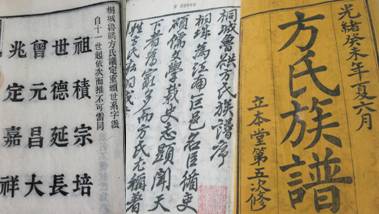 光緒癸未年夏六月
方氏族譜
立本堂第五次修
桐城魯谼方氏族譜序
桐城為江南巨邑名臣循吏
碩儒學載史志顯聞天
下者舊家多而方氏尤稱著
桐城魯谼方氏議定重頒世系字派
自十一世起依次而推不可雷同
祖積宗培
世德延長
曾元昌大
兆定嘉祥